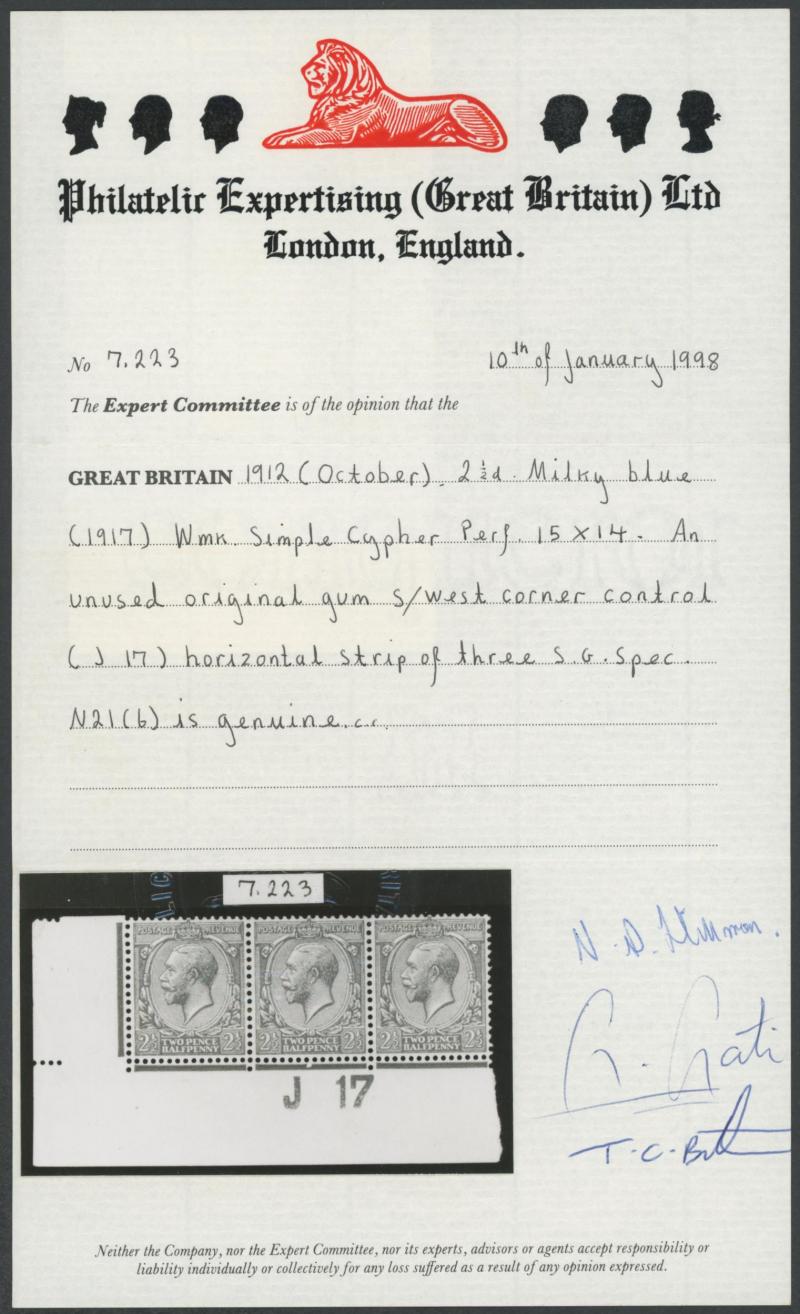 Philatelic Expertising (Great Britain) Ltd
London, England.
No 7.223 10th of January 1998
The Expert Committee is of the opinion that the
GREAT BRITAIN 1912 (October). 2½d. Milky blue
(1917) Wmk. Simple Cypher Perf. 15 X 14. An
unused original gum s/west corner control
(J 17) horizontal strip of three S.G. Spec.
N21(6) is genuine...
7.223
POSTAGE REVENUE POSTAGE REVENUE POSTAGE REVENUE
2½ TWO PENCE HALFPENNY 2½ 2½ TWO PENCE HALFPENNY 2½ 2½ TWO PENCE HALFPENNY 2½
J 17
G. Gati
T.C.
Neither the Company, nor the Expert Committee, nor its experts, advisors or agents accept responsibility or
liability individually or collectively for any loss suffered as a result of any opinion expressed.